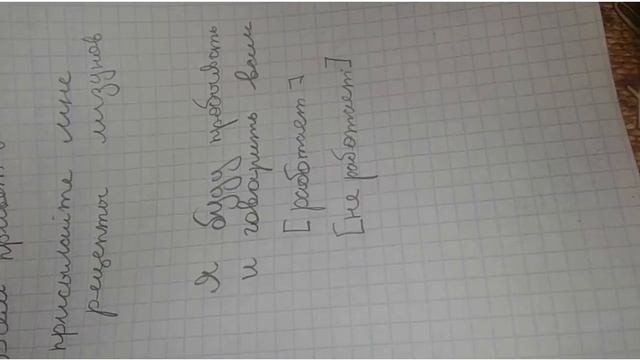 Всем привет
присылайте мне
рецепты лизунов
Я буду пробывать
и говорить вам
[работает]
[не работает]